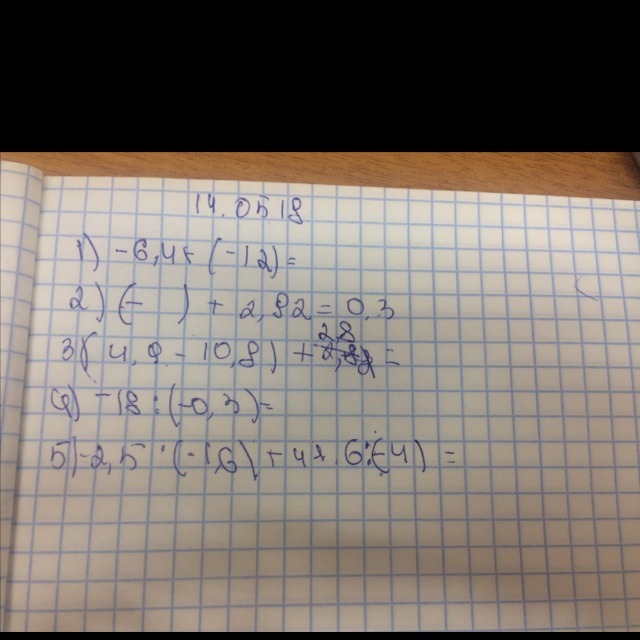 14.05 18
1) -6,4+ (-12)=
2) (- ) + 2,92 = 0,3
3( 4,9 - 10,8) + 2,8 =
4) -18 : (-0,3)=
5) -2,5 · (-1,6) + 4,6 : (-4) =